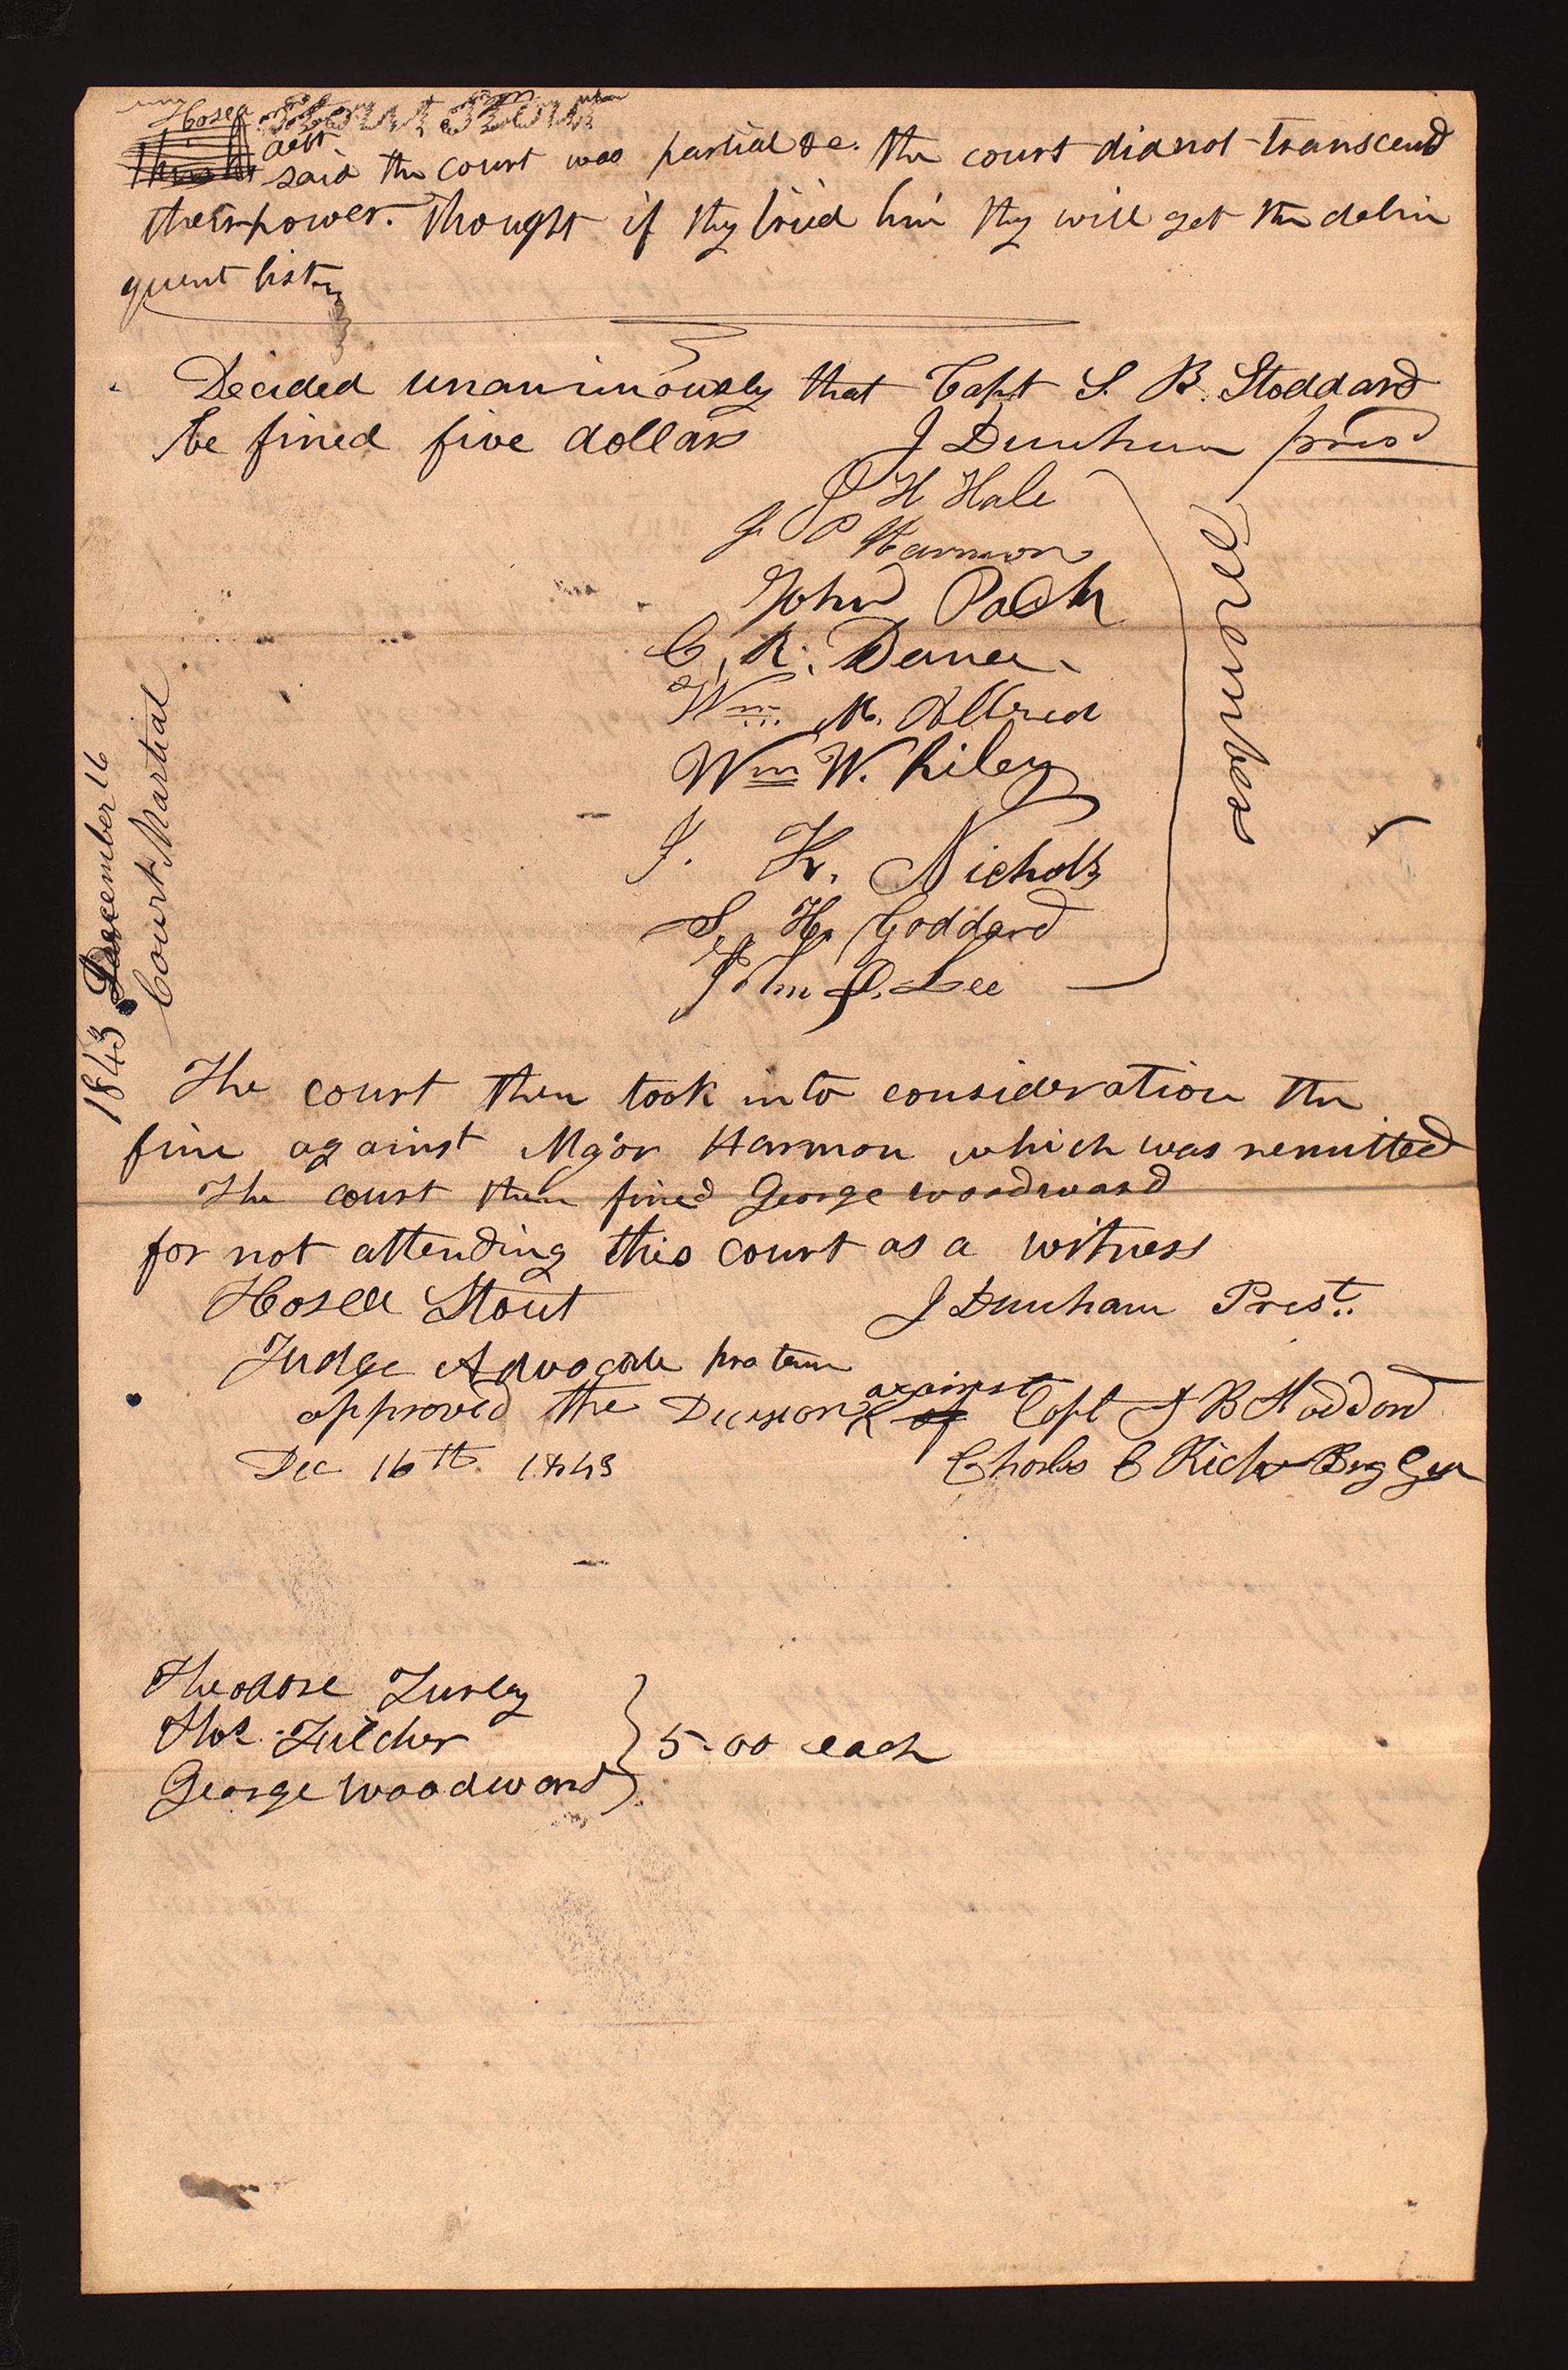 Hosea Stout Stout
deft.
said the court was partial &c. the court did not transcend
their power. thought if thy tried him thy will get the delin
quent list
Decided unanimously that Capt S. B. Stoddard
be fined five dollars J Dunham prest
J H Hale
J. P Harmon
John Pack
C. R. Dana
Wm. M. Allred
Wm W. Riley
J. K. Nichols
S. H. Goddard
John D. Lee
members
1843 December 16
Court Martial
The court then took into consideration the
fine against Major Harmon which was remitted
The court then fined George woodward
for not attending this court as a witness
Hosea Stout J Dunham Prest.
Judge Advocate pro tem
against
approved the Decision of Capt S B Stoddard
Dec 16th 1843 Charles C Rich Brg Gen
Theodore Turley
Thos. Fulcher
George Woodward
5.00 each